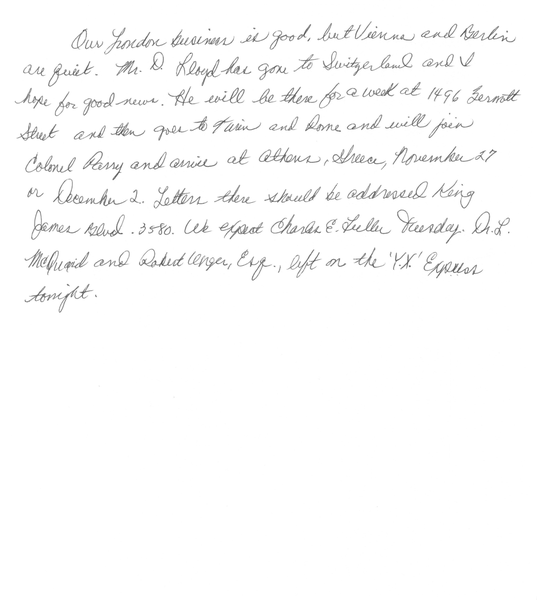 Our London business is good, but Vienna and Berlin
are quiet. Mr. D. Lloyd has gone to Switzerland and I
hope for good news. He will be there for a week at 1496 Zermott
Street and then goes to Turin and Rome and will join
Colonel Parry and arrive at Athens, Greece, November 27
or December 2. Letters there should be addressed King
James Blvd. 3580. We expect Charles E. Fuller Tuesday. Dr. L.
McQuaid and Robert Unger, Esq., left on the 'Y.X.' Express
tonight.